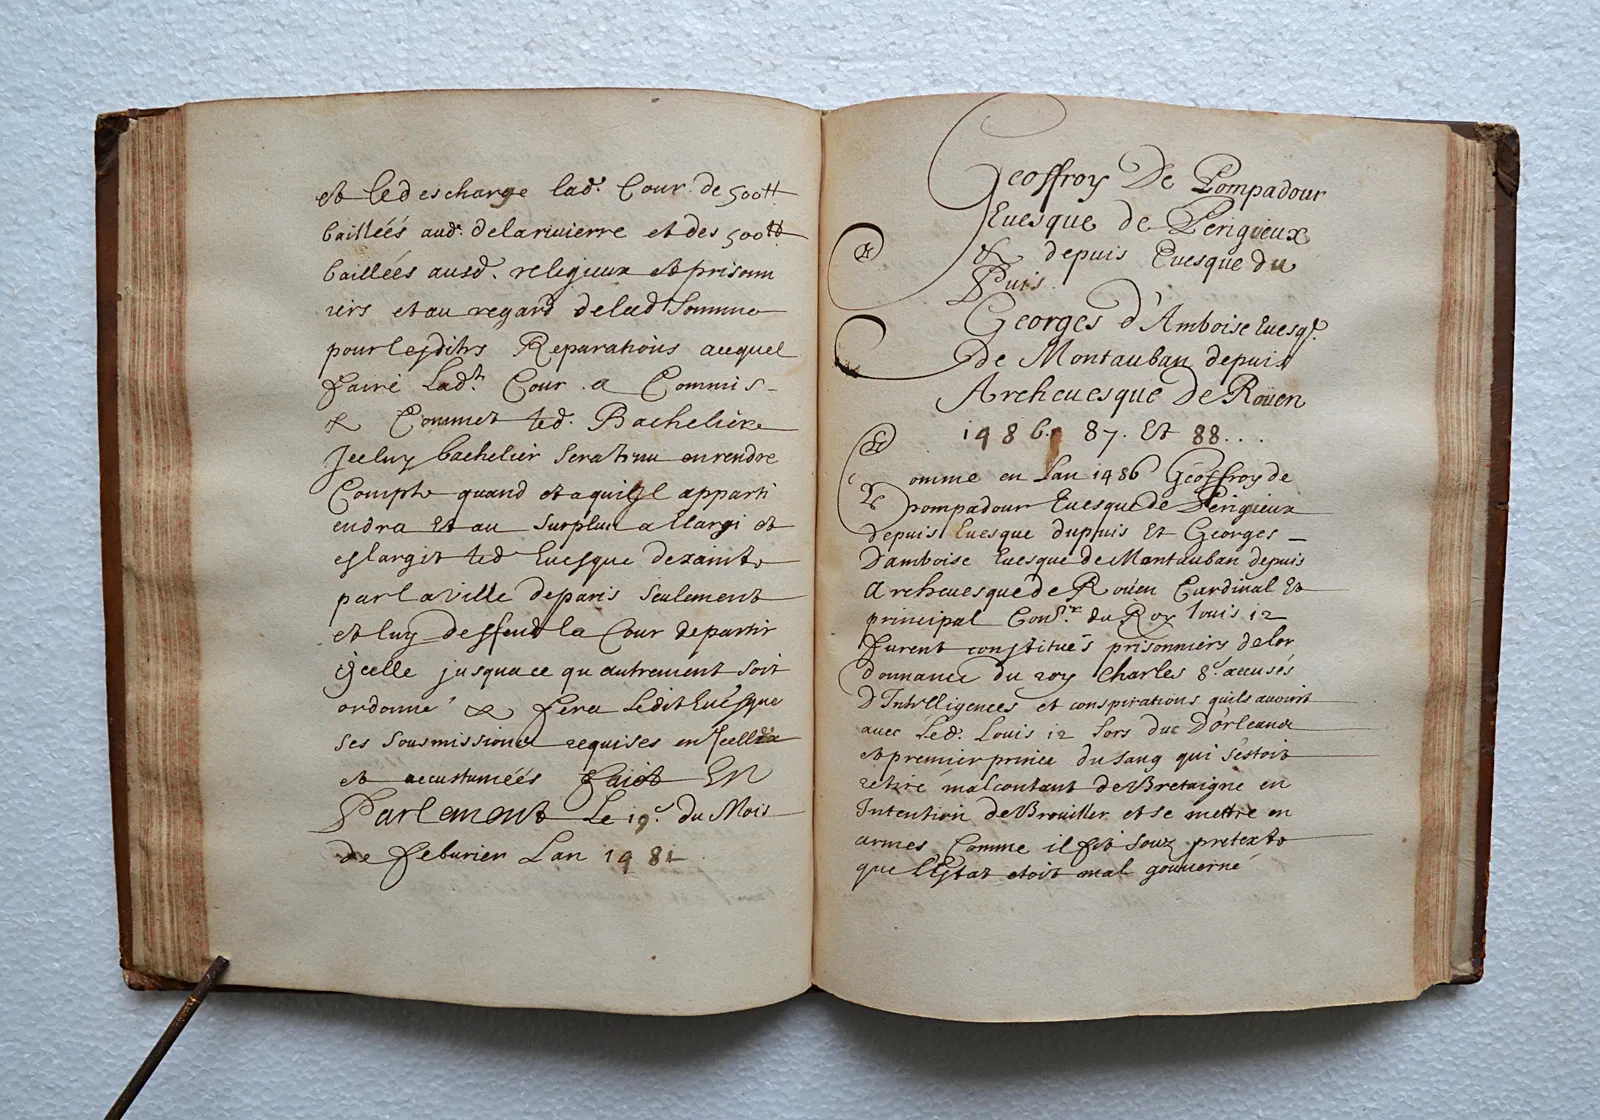 et led descharge lad.e Cour de 500tt
baillées aud. delariuierre et des 500tt
baillées ausd. religieux et prisonn
iers et au regard delad Somme
pour lesdites Reparations auquel
faire Lad.te Cour a Commis
& Commet led. Bachelier
Jceluy bachelier sera tenu en rendre
Compte quand et a qui Jl apparti
endra Et au surplus a Elargi et
eslargit led Euesque dexainte
par la ville de paris seulement
et luy deffend la Cour de partir
ijcelle jusqua ce qu autrement soit
ordonné & fera Ledit Euesque
ses sousmissions requises en Jcelle
et accustumées Faict En
Parlement Le 19.e du Mois
de feburier Lan 1481
Geoffroy De Pompadour
Euesque de Perigieux
& depuis Euesque du
Puis.
Georges d'Amboise Euesq.
de Montauban depuis
Archeuesque De Roüen
1486. 87. Et 88...
Comme en Lan 1486 Geoffroy de
Pompadour Euesque de Perigieux
depuis Euesque du puis Et Georges
Damboise Euesque de Montauban depuis
Archeuesque de Roüen Cardinal Et
principal Cons.r du Roy Louis 12
furent constitués prisonniers de lor
donnance du roy Charles 8.e accusés
D'Intelligences et conspirations quils auoint
auec Led. Louis 12 lors duc D'orleans
et premier prince du sang qui s'estoit
retiré malcontant de Bretaigne en
Intention de Brouiller et se mettre en
armes Comme il fit souz pretexte
que L'Estat etoit mal gouuerné